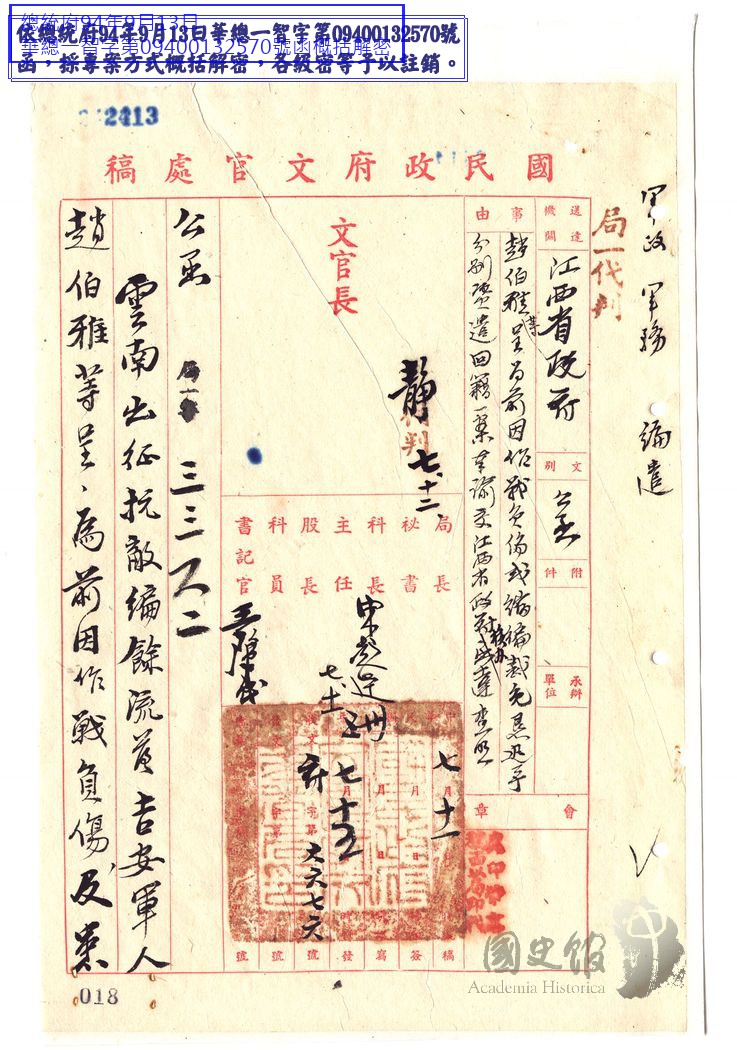 總統府94年9月13日
華總一智字第09400132570號函概括解密
依總統府94年9月13日華總一智字第09400132570號
函，採專案方式概括解密，各級密等予以註銷。
2413
國民政府文官處稿
軍政 軍務 編遣
局一代判
送達機關
江西省政府
文別
公函
附件
承辦單位
事由
趙伯雅等呈為前因作戰負傷或編編裁免懇迅予
分別資遣回籍一案奉諭交江西省政府核辦函達查照
會章
文官長
靜
代判
七、十二、
局長
秘書
科長
主任
股長
科員
書記官
七、十一
七 月 十一
七 月 十五
府 字第 六六七六 號
公函
三三八二
雲南出征抗敵編餘流落吉安軍人
趙伯雅等呈、為前因作戰負傷、及裁
018
國史館
Academia Historica